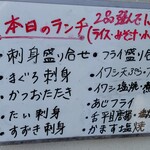 本日のランチ
2品選んで
(ライス・みそ汁
・刺身盛り合せ
・まぐろ刺身
・かつおたたき
・たい刺身
・すずき刺身
・フライ盛り合せ
・イワシ天
・イワシ塩焼
・あじフライ
・舌平目唐揚
・かます塩焼